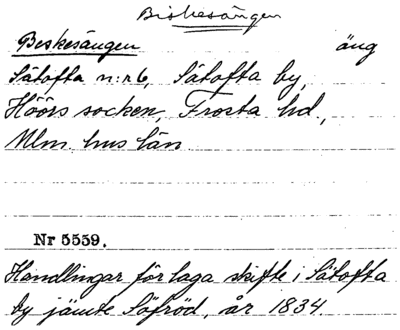 Biskesängen
Beskesängen äng
Sätofta n:r 6, Sätofta by,
Höörs socken, Frosta hd,
Mlm hus län
Nr 5559.
Handlingar för laga skifte i Sätofta
by jämte Säfröd, år 1834